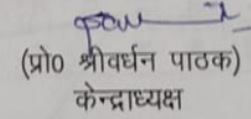 (प्रो० श्रीवर्धन पाठक)
केन्द्राध्यक्ष